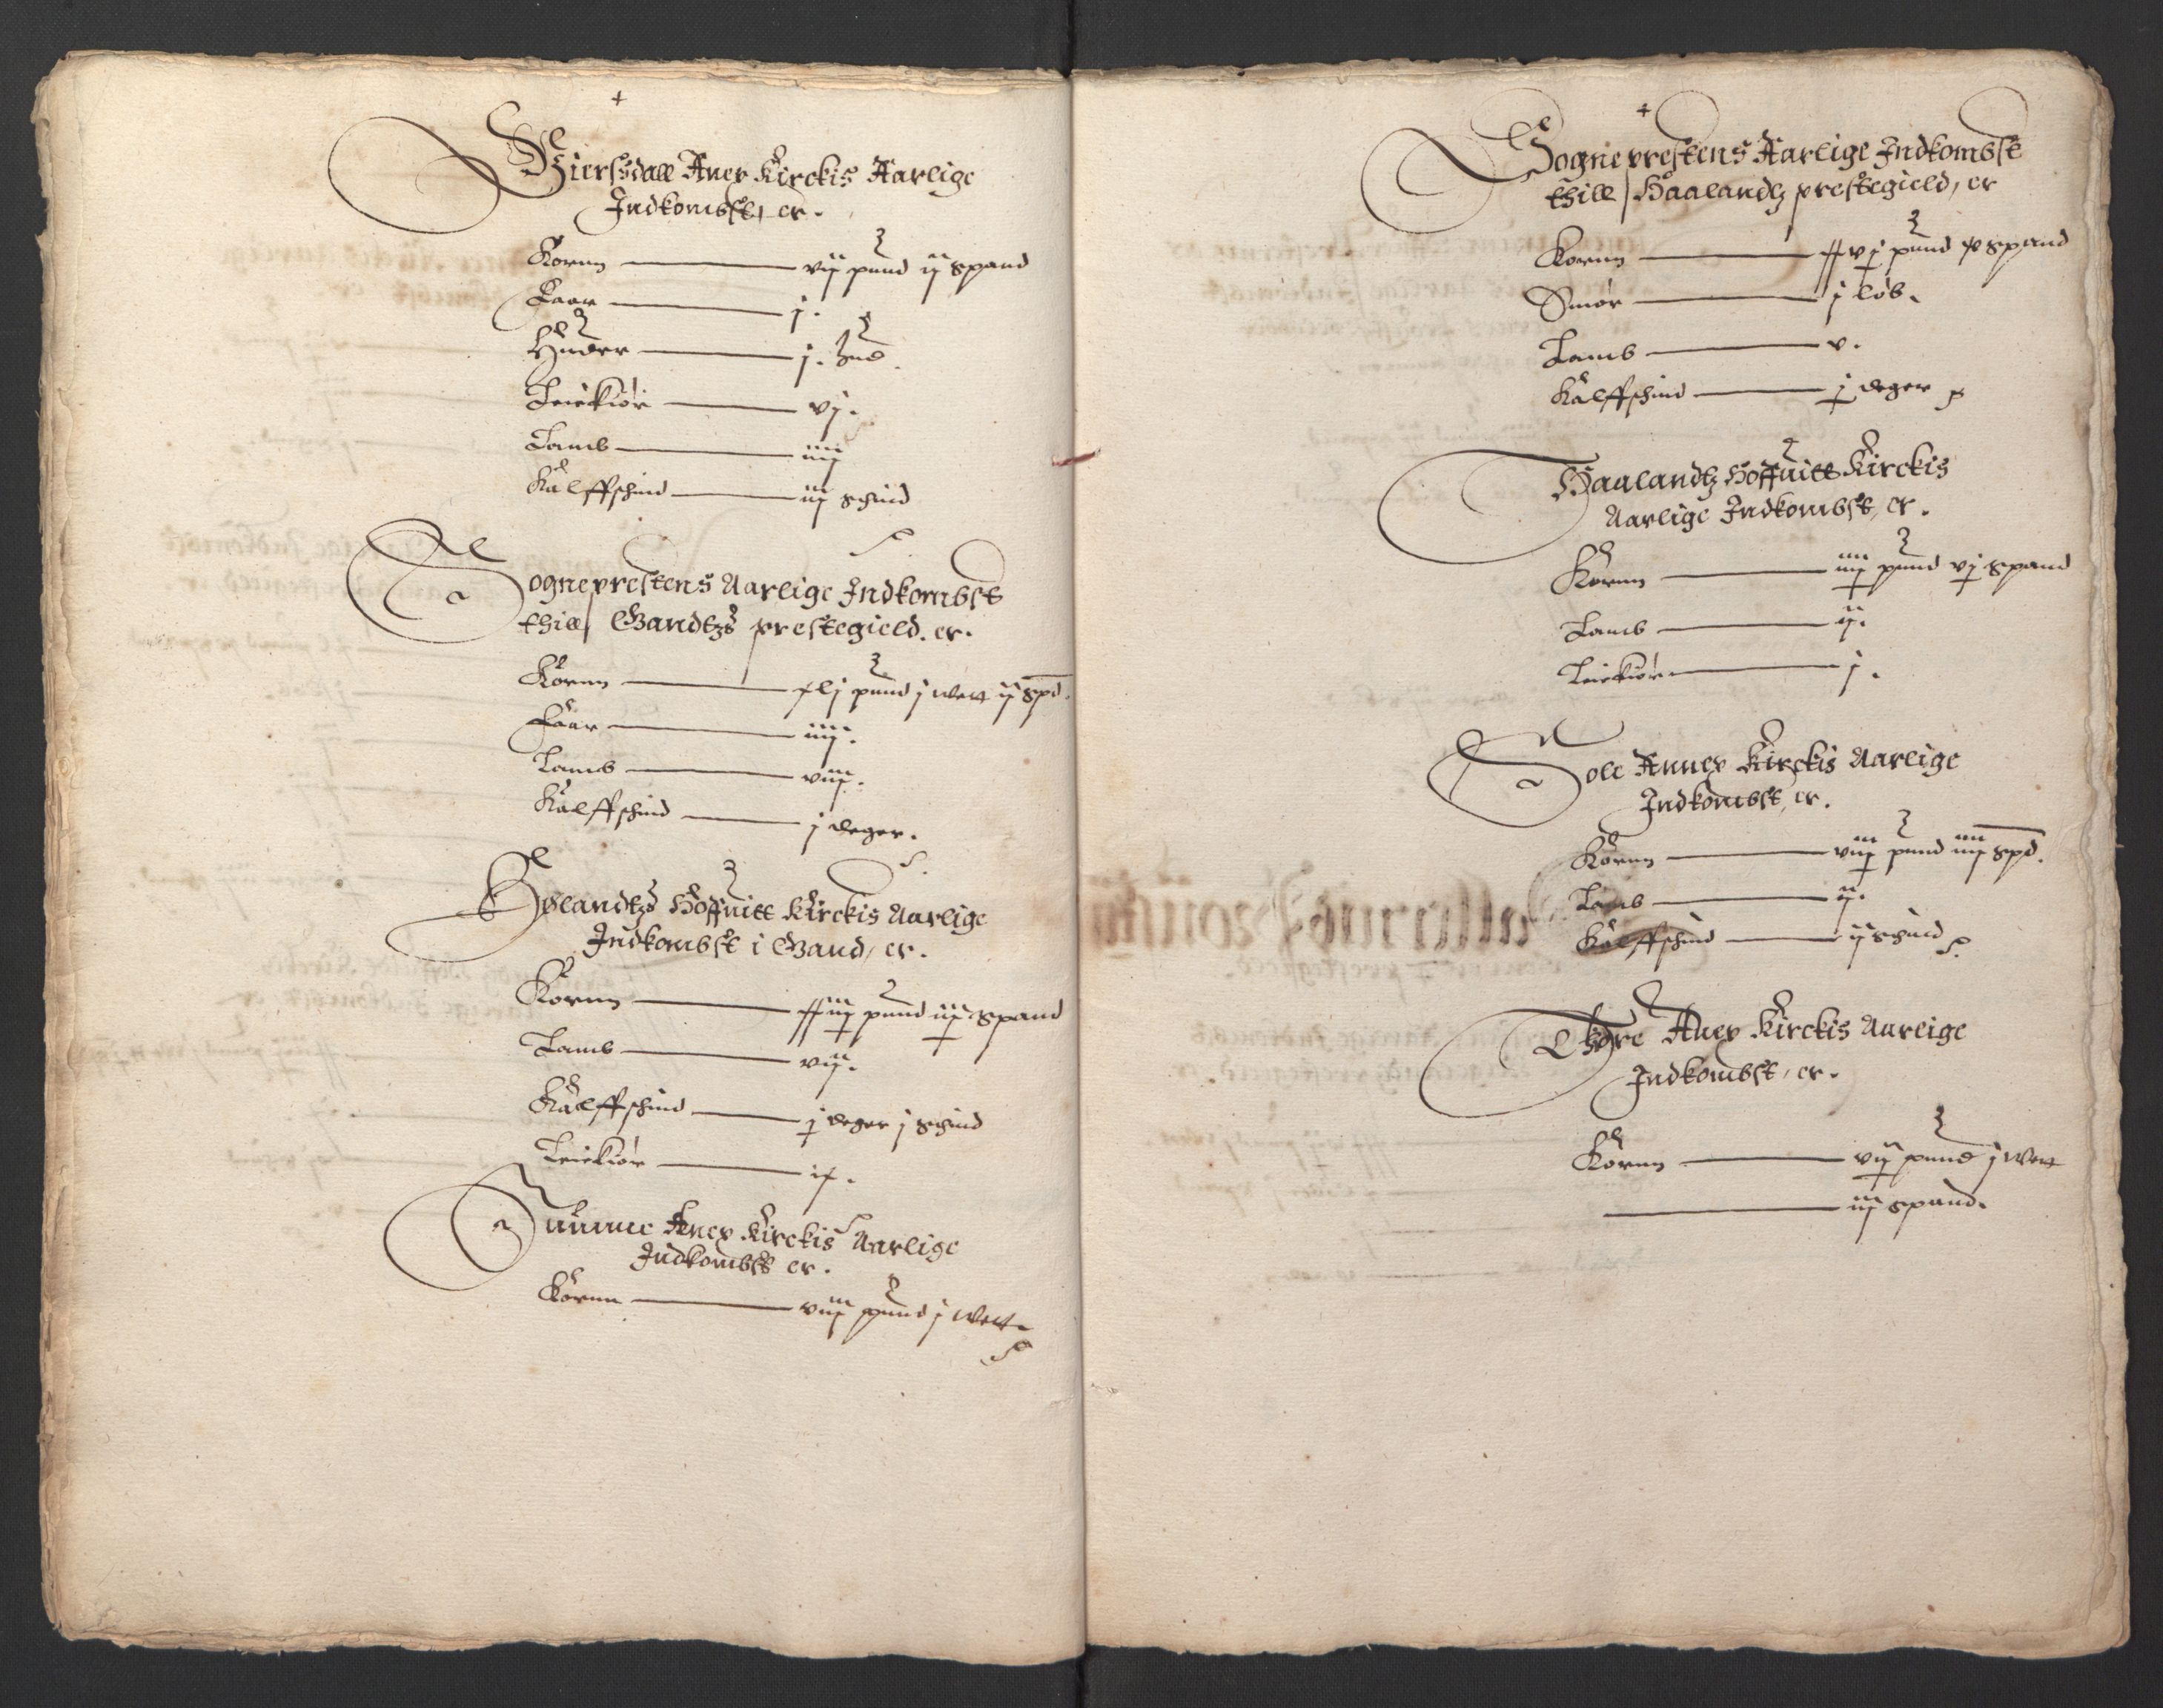 Giersdall Anex Kirckis Aarlige
Indkombst, er.
Kornn vij pund ij spand
Faar j.
Huder j. hud
Leiekiør vj.
Lamb iiij
Kalffschind iij schind
Sogneprestens Aarlige Indkombst
thill Gandtzs prestegield. er.
Kornn xlj pund j wett ij spd.
Faar iiij.
Lamb viij.
Kalffschind j deger.
Hølandtzs Hoffuitt Kirckis Aarlige
Indkombst i Gand, er.
Kornn xxiij pund iij spand
Lamb vij.
Kalffschind j deger j schind
Leiekiør ix.
Anex Kirckis Aarlige
Indkombst er.
Kornn viij pund j wett.
Sogneprestens Aarlige Indkombst
thill Haalandtz prestegield, er
Kornn xxvj pund spand
Smør j løb.
Lamb v.
Kalffschind j deger
Haalandtz Hoffuitt Kirckis
Aarlige Indkombst, er.
Kornn iiij pund vj spand
Lamb ij.
Leiekiør j.
Sole Annex Kirckis Aarlige
Indkombst, er.
Kornn viij pund iiij spd.
Lamb ij.
Kalffschind ij schind
Thore Anex Kirckis Aarlige
Indkombst, er.
Kornn vij pund j wett
iij spand.